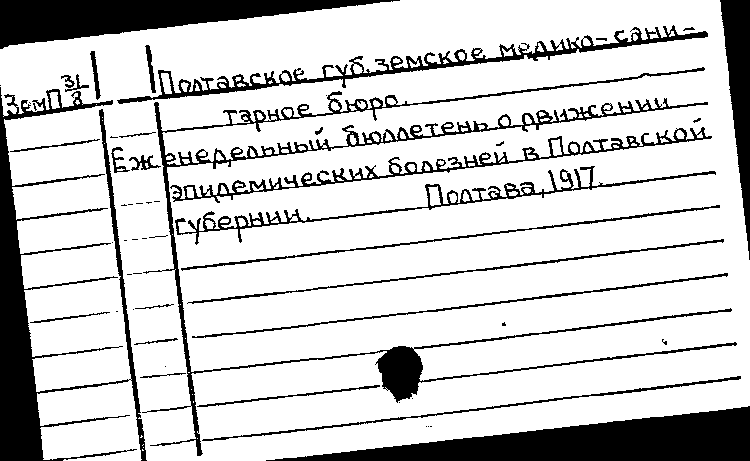 ЗемП 31/8
Полтавское губ. земское медико-сани-
тарное бюро.
Еженедельный бюллетень о движении
эпидемических болезней в Полтавской
губернии. Полтава, 1917.